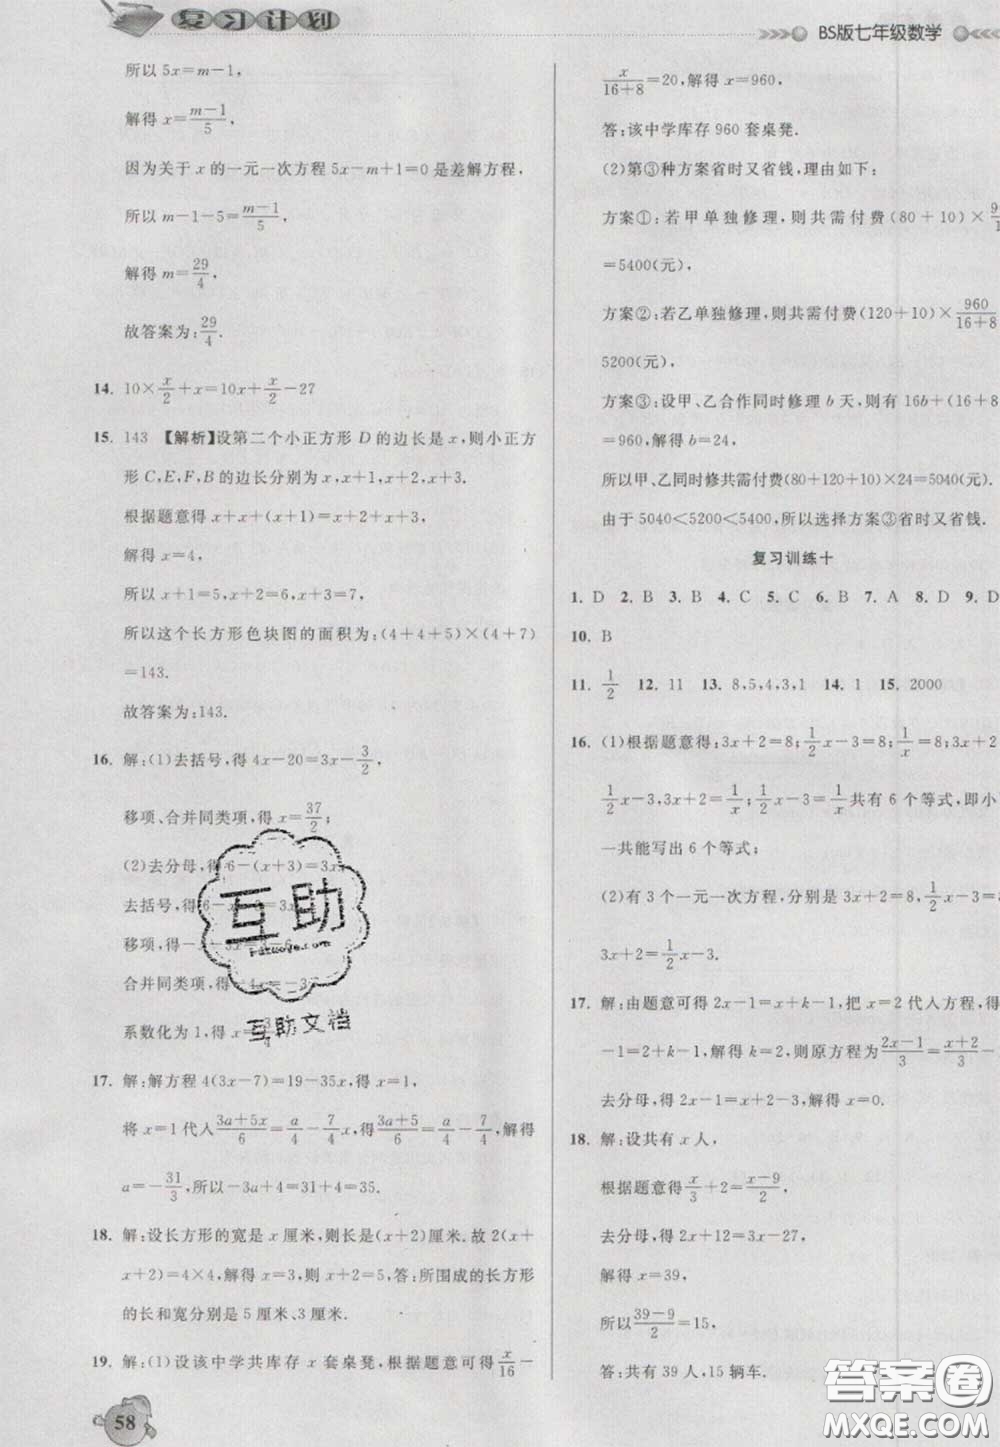 复习计划
BS版七年级数学
所以 5x=m-1,
解得 x=\frac{m-1}{5},
因为关于 x 的一元一次方程 5x-m+1=0 是差解方程,
所以 m-1-5=\frac{m-1}{5},
解得 m=\frac{29}{4},
故答案为:\frac{29}{4}.
14. 10×\frac{x}{2}+x=10x+\frac{x}{2}-27
15. 143 【解析】设第二个小正方形 D 的边长是 x,则小正方
形 C,E,F,B 的边长分别为 x,x+1,x+2,x+3.
根据题意得 x+x+(x+1)=x+2+x+3,
解得 x=4,
所以 x+1=5,x+2=6,x+3=7,
所以这个长方形色块图的面积为:(4+4+5)×(4+7)
=143.
故答案为:143.
16. 解:(1)去括号,得 4x-20=3x-\frac{3}{2},
移项、合并同类项,得 x=\frac{37}{2};
(2)去分母,得 6-(x+3)=3x
去括号,得 6-x-3=3x
移项,得-x-3x
合并同类项,得
系数化为 1,得 x=\frac{3}{4}
17. 解:解方程 4(3x-7)=19-35x,得 x=1,
将 x=1 代入\frac{3a+5x}{6}=\frac{a}{4}-\frac{7}{4}x,得\frac{3a+5}{6}=\frac{a}{4}-\frac{7}{4},解得
a=-\frac{31}{3},所以-3a+4=31+4=35.
18. 解:设长方形的宽是 x 厘米,则长是(x+2)厘米.故 2(x+
x+2)=4×4,解得 x=3,则 x+2=5,答:所围成的长方形
的长和宽分别是 5 厘米、3 厘米.
19. 解:(1)设该中学共库存 x 套桌凳,根据题意可得\frac{x}{16}-
58
\frac{x}{16+8}=20,解得 x=960,
答:该中学库存 960 套桌凳.
(2)第③种方案省时又省钱,理由如下:
方案①:若甲单独修理,则共需付费(80+10)×
=5400(元),
方案②:若乙单独修理,则共需付费(120+10)×\frac{960}{16+8}
5200(元),
方案③:设甲、乙合作同时修理 b 天,则有 16b+(16+8
=960,解得 b=24,
所以甲、乙同时修共需付费(80+120+10)×24=5040(元).
由于 5040<5200<5400,所以选择方案③省时又省钱.
复习训练十
1. D 2. B 3. B 4. C 5. C 6. B 7. A 8. D 9. D
10. B
11. \frac{1}{2} 12. 11 13. 8,5,4,3,1 14. 1 15. 2000
16. (1)根据题意得:3x+2=8;\frac{1}{2}x-3=8;\frac{1}{x}=8;3x+2
\frac{1}{2}x-3,3x+2=\frac{1}{x};\frac{1}{2}x-3=\frac{1}{x}共有 6 个等式,即小
一共能写出 6 个等式;
(2)有 3 个一元一次方程,分别是 3x+2=8,\frac{1}{2}x-3=8
3x+2=\frac{1}{2}x-3.
17. 解:由题意可得 2x-1=x+k-1,把 x=2 代入方程,得
-1=2+k-1,解得 k=2,则原方程为\frac{2x-1}{3}=\frac{x+2}{3}
去分母,得 2x-1=x+2-3,解得 x=0.
18. 解:设共有 x 人,
根据题意得\frac{x}{3}+2=\frac{x-9}{2},
去分母,得 2x+12=3x-27,
解得 x=39,
所以\frac{39-9}{2}=15,
答:共有 39 人,15 辆车.
互助
互助文档
答案圈
MXQE.COM